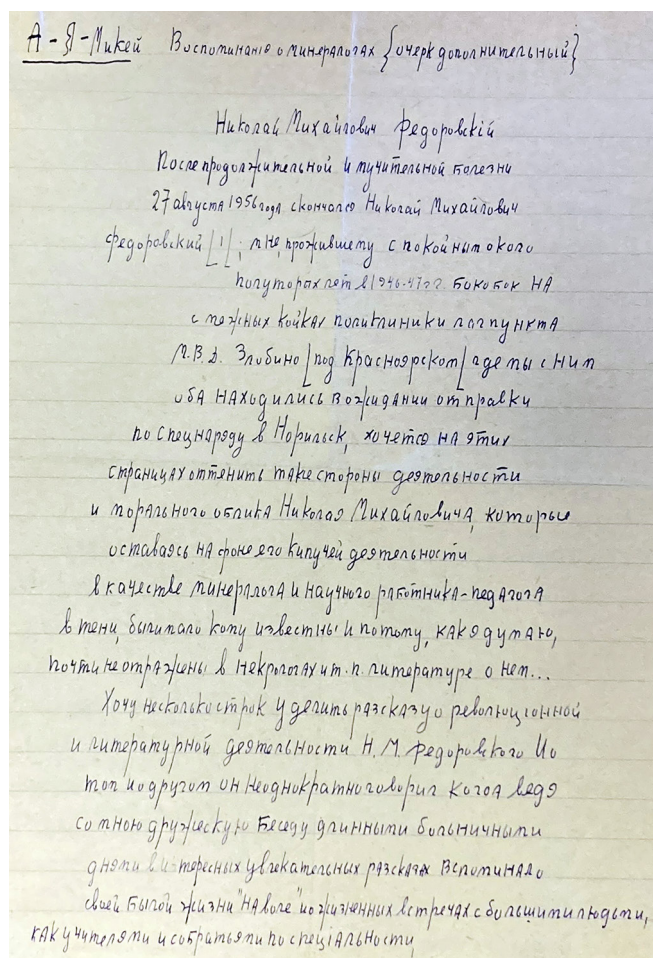 А-Я-Микей Воспоминанiя о минералогах {очерк дополнительный}
Николай Михайлович Федоровскiй
После продолжительной и мучительной болезни
27 августа 1956 года скончался Николай Михайлович
Федоровский [1]; мне, прожившему с покойным около
полуторах лет в 1946-47 г.г. бок о бок на
смежных койках поликлиники лагпункта
М.В.Д. Злобино [под Красноярском[ где мы с ним
оба находились в ожидании отправки
по спецнаряду в Норильск, хочется на этих
страницах оттенить такие стороны деятельности
и морального облика Николая Михайловича, которые
оставаясь на фоне его кипучей деятельности
в качестве минералога и научного работника-педагога
в тени, были мало кому известны и потому, как я думаю,
почти не отражены в некрологах и т.п. литературе о нем...
Хочу несколько строк уделить разсказу о революцiонной
и литературной деятельности Н.М. Федоровского И о
том и о другом он неоднократно говорил когда ведя
со мною дружескую беседу длинными больничными
днями в интересных увлекательных разсказах вспоминал о
своей былой жизни "на воле" и о жизненных встречах с большими людьми,
как учителями и собратьями по спецiальности,